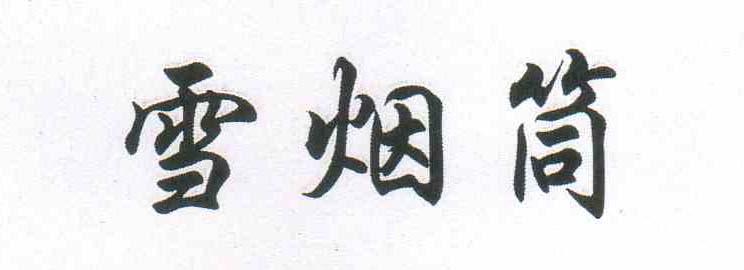 雪烟筒